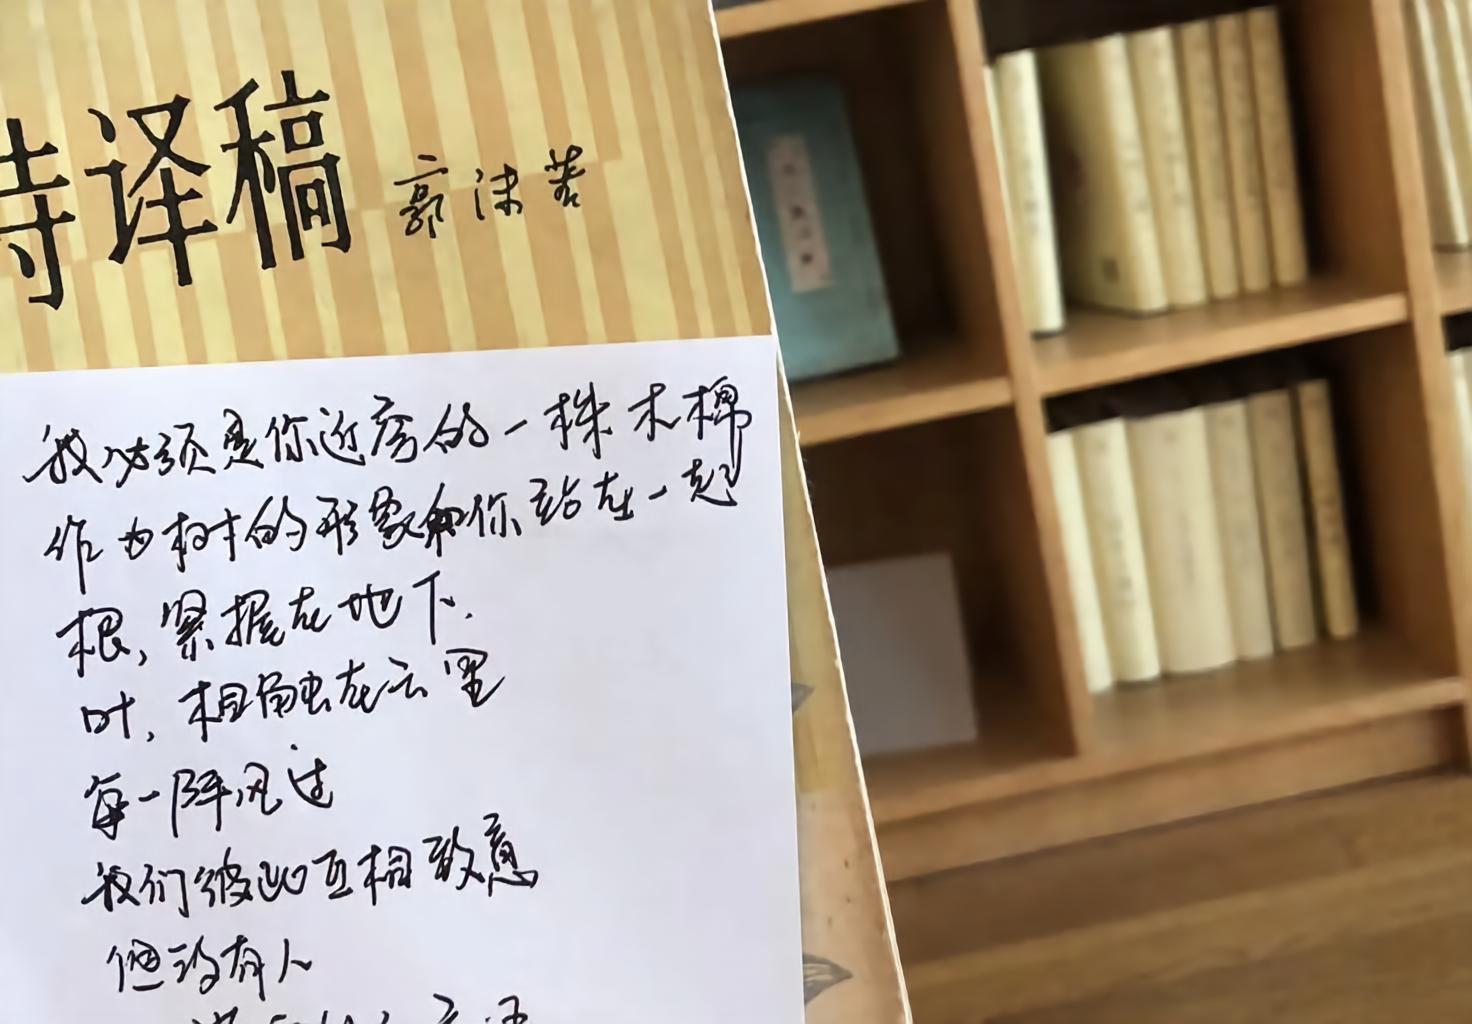 诗译稿 郭沫若
我必须是你近旁的一株木棉
作为树的形象和你站在一起
根,紧握在地下.
叶,相触在云里
每一阵风过
我们彼此互相致意
但没有人